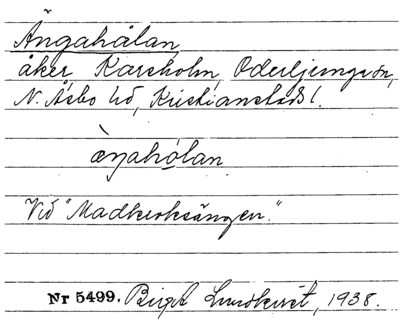 Ängahålan
åker, Karsholm, Oderljunga sn,
N. Åsbo hd, Kristianstads l.
æŋahólan
Vid "Madkroksängen."
Nr 5499. Birgit Lundkvist, 1938.